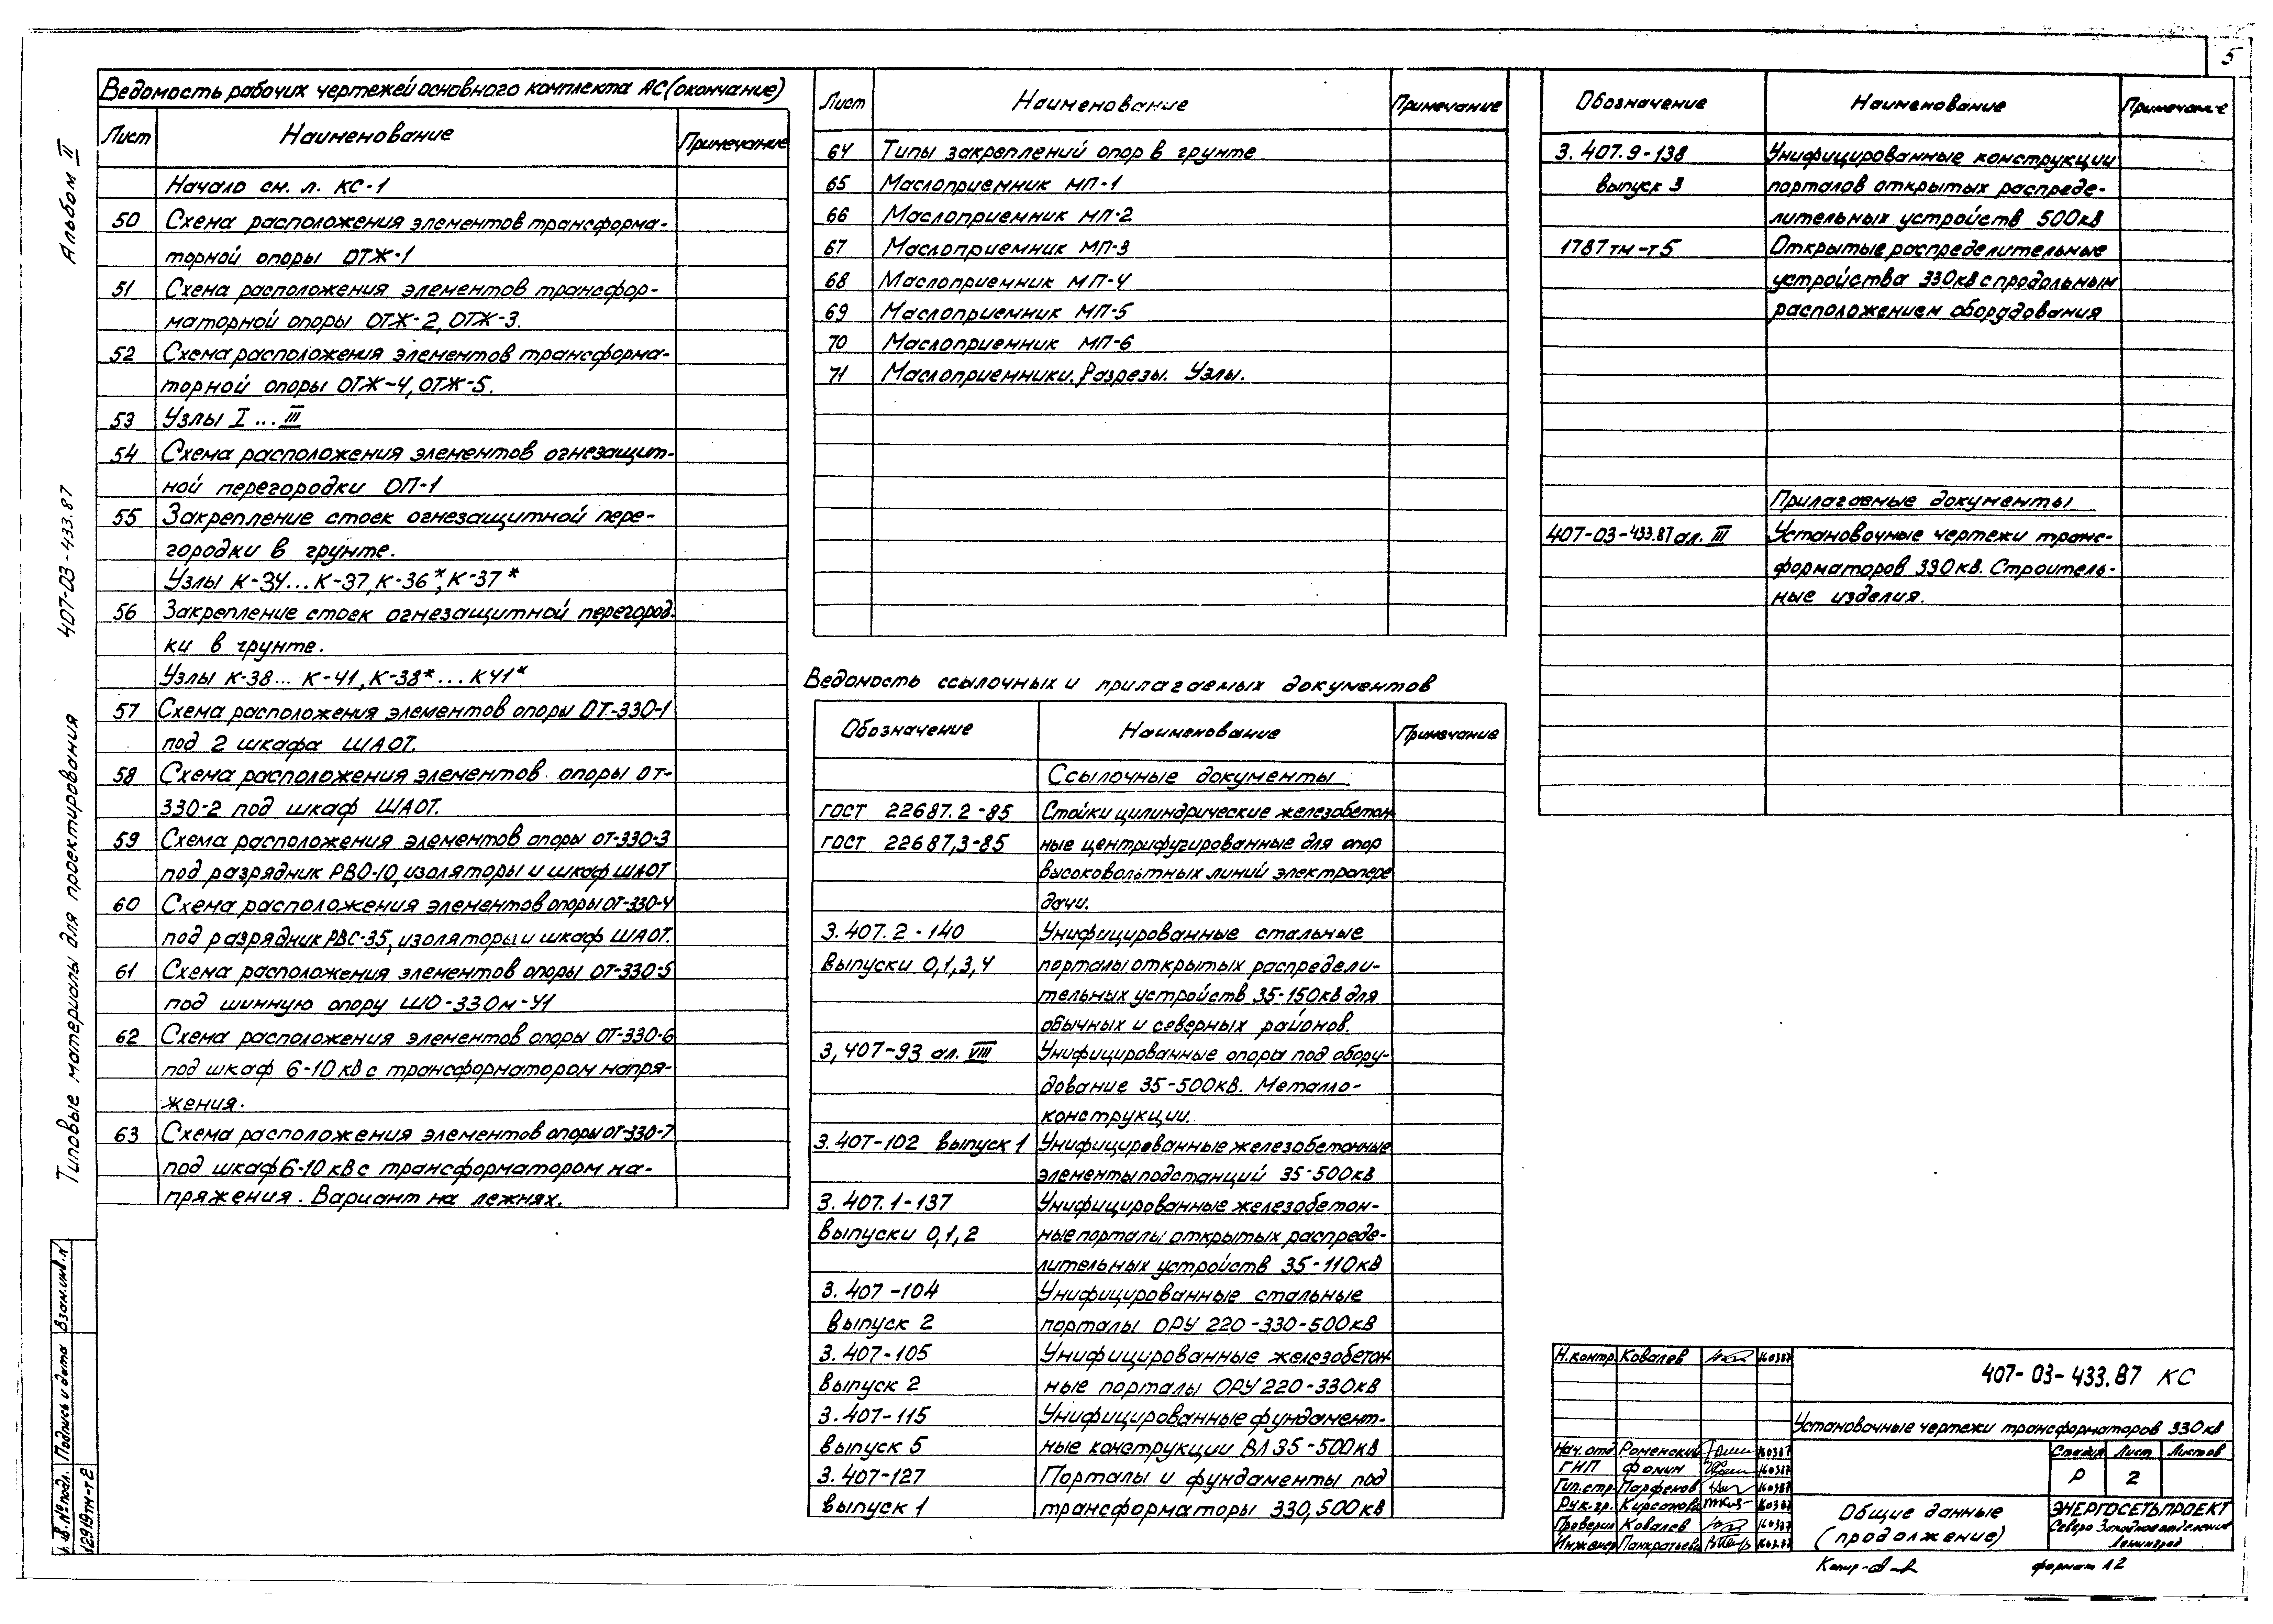 5
Альбом II
407-03-433.87
Типовые материалы для проектирования
Ведомость рабочих чертежей основного комплекта АС (окончание)
Лист Наименование Примечание
Начало см. л. КС-1
50 Схема расположения элементов трансформа-
торной опоры ОТЖ-1
51 Схема расположения элементов трансфор-
маторной опоры ОТЖ-2, ОТЖ-3.
52 Схема расположения элементов трансформа-
торной опоры ОТЖ-4, ОТЖ-5.
53 Узлы I ... III
54 Схема расположения элементов огнезащит-
ной перегородки ОП-1
55 Закрепление стоек огнезащитной пере-
городки в грунте.
Узлы К-34...К-37, К-36*, К-37*
56 Закрепление стоек огнезащитной перегород-
ки в грунте.
Узлы К-38... К-41, К-38*... К41*
57 Схема расположения элементов опоры ОТ-330-1
под 2 шкафа ШАОТ.
58 Схема расположения элементов опоры ОТ-
330-2 под шкаф ШАОТ.
59 Схема расположения элементов опоры ОТ-330-3
под разрядник РВО-10, изоляторы и шкаф ШАОТ
60 Схема расположения элементов опоры ОТ-330-4
под разрядник РВС-35, изоляторы и шкаф ШАОТ.
61 Схема расположения элементов опоры ОТ-330-5
под шинную опору ШО-330м-У1
62 Схема расположения элементов опоры ОТ-330-6
под шкаф 6-10 кв с трансформатором напря-
жения.
63 Схема расположения элементов опоры ОТ-330-7
под шкаф 6-10 кв с трансформатором на-
пряжения. Вариант на лежнях.
Лист Наименование Примечание
64 Типы закреплений опор в грунте
65 Маслоприемник МП-1
66 Маслоприемник МП-2
67 Маслоприемник МП-3
68 Маслоприемник МП-4
69 Маслоприемник МП-5
70 Маслоприемник МП-6
71 Маслоприемники. Разрезы. Узлы.
Ведомость ссылочных и прилагаемых документов
Обозначение Наименование Примечание
Ссылочные документы
ГОСТ 22687.2-85 Стойки цилиндрические железобетон-
ГОСТ 22687,3-85 ные центрифугированные для опор
высоковольтных линий электропере
дачи.
3.407.2-140 Унифицированные стальные
Выпуски 0,1,3,4 порталы открытых распредели-
тельных устройств 35-150кв для
обычных и северных районов.
3,407-93 ал. VIII Унифицированные опоры под обору-
дование 35-500кв. Металло-
конструкции.
3.407-102 выпуск 1 Унифицированные железобетонные
элементы подстанций 35-500кв
3.407.1-137 Унифицированные железобетон-
Выпуски 0,1,2 ные порталы открытых распреде-
лительных устройств 35-110кв
3.407-104 Унифицированные стальные
выпуск 2 порталы ОРУ 220-330-500кв
3.407-105 Унифицированные железобетон-
выпуск 2 ные порталы ОРУ 220-330кв
3.407-115 Унифицированные фундамент-
выпуск 5 ные конструкции ВЛ 35-500кв
3.407-127 Порталы и фундаменты под
выпуск 1 трансформаторы 330,500кв
Обозначение Наименование Примечание
3.407.9-138 Унифицированные конструкции
выпуск 3 порталов открытых распреде-
лительных устройств 500кв
1787тм-т5 Открытые распределительные
устройства 330кв с продольным
расположением оборудования
Прилагаемые документы
407-03-433.87 ал. III Установочные чертежи транс-
форматоров 330кв. Строитель-
ные изделия.
Н.контр. Ковалев 160387
407-03-433.87 КС
Установочные чертежи трансформаторов 330кв
Нач.отд. Роменский 160387
ГИП Фомин 160387
Гип.стр. Парфенов 160387
Рук.гр. Кирсанова 160387
Проверил Ковалев 160387
Инженер Панкратьева 160387
Стадия Лист Листов
Р 2
Общие данные
(продолжение)
ЭНЕРГОСЕТЬПРОЕКТ
Северо-Западное отделение
Ленинград
Копир- формат А2
Взам.инв.н
Подпись и дата
И.В.№подл.
12919тм-т2